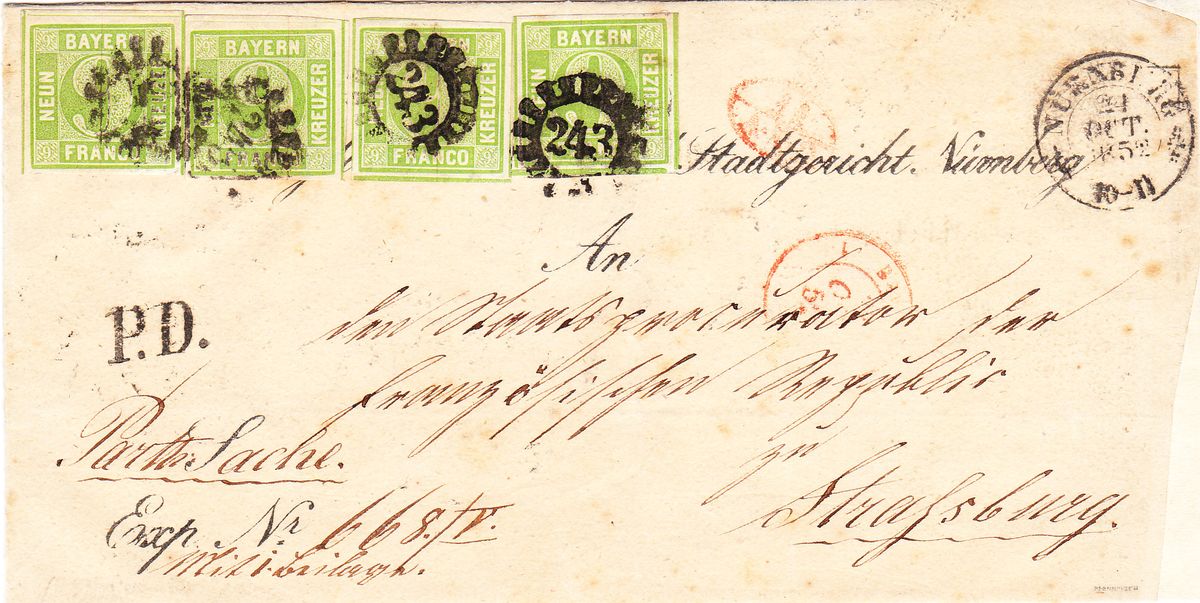 BAYERN
NEUN
KREUZER
FRANCO
BAYERN
KREUZER
BAYERN
KREUZER
FRANCO
243
BAYERN
KREUZER
243
NÜRNBERG
21
OCT.
1852
10-11
Stadtgericht. Nürnberg
An
P.D.
den Staatsprocurator der
französischen Republic
zu
Straßsburg.
Parth. Sache.
Exp. Nr 668./V.
Mit 1. Beilage.